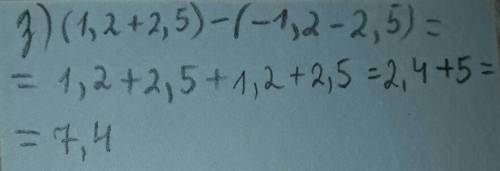 з) (1,2+2,5)-(-1,2-2,5)=
= 1,2+2,5+1,2+2,5=2,4+5=
= 7,4